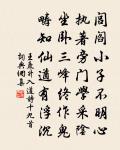 閭閻小子不明心
執著旁門學采陰
坐臥三峰終作鬼
疇知仙道有浮沉
王慶升入道詩十九首
詞典網集